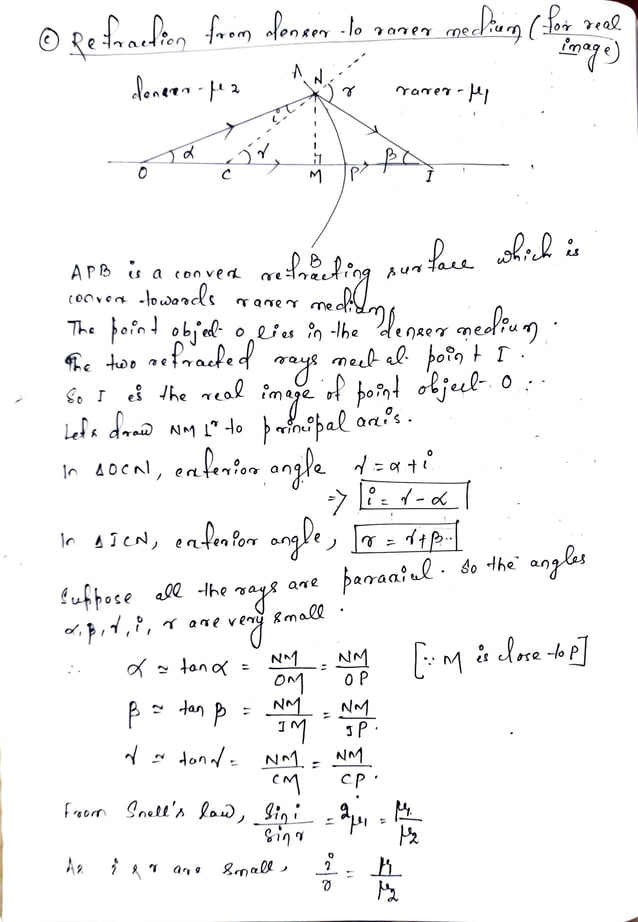 (c) Refraction from denser to rarer medium (for real image)
A N
denser - μ2
i
r
rarer - μ1
α
γ
β
O
C
M
P
I
B
APB is a convex refracting surface which is
convex towards rarer medium,
The point object O lies in the denser medium.
The two refracted rays meet at point I.
So I is the real image of point object O.
Let's draw NM ⊥r to principal axis.
In ΔOCN, exterior angle γ = α + i
=> i = γ - α
In ΔICN, exterior angle, r = γ + β..
Suppose all the rays are paraxial. So the angles
α, β, γ, i, r are very small.
∴ α ≃ tan α = NM/OM = NM/OP [∵ M is close to P]
β ≃ tan β = NM/IM = NM/IP.
γ ≃ tan γ = NM/CM = NM/CP.
From Snell's law, Sin i/Sin r = ²μ₁ = μ₁/μ₂
As i & r are small, i/r = μ₁/μ₂